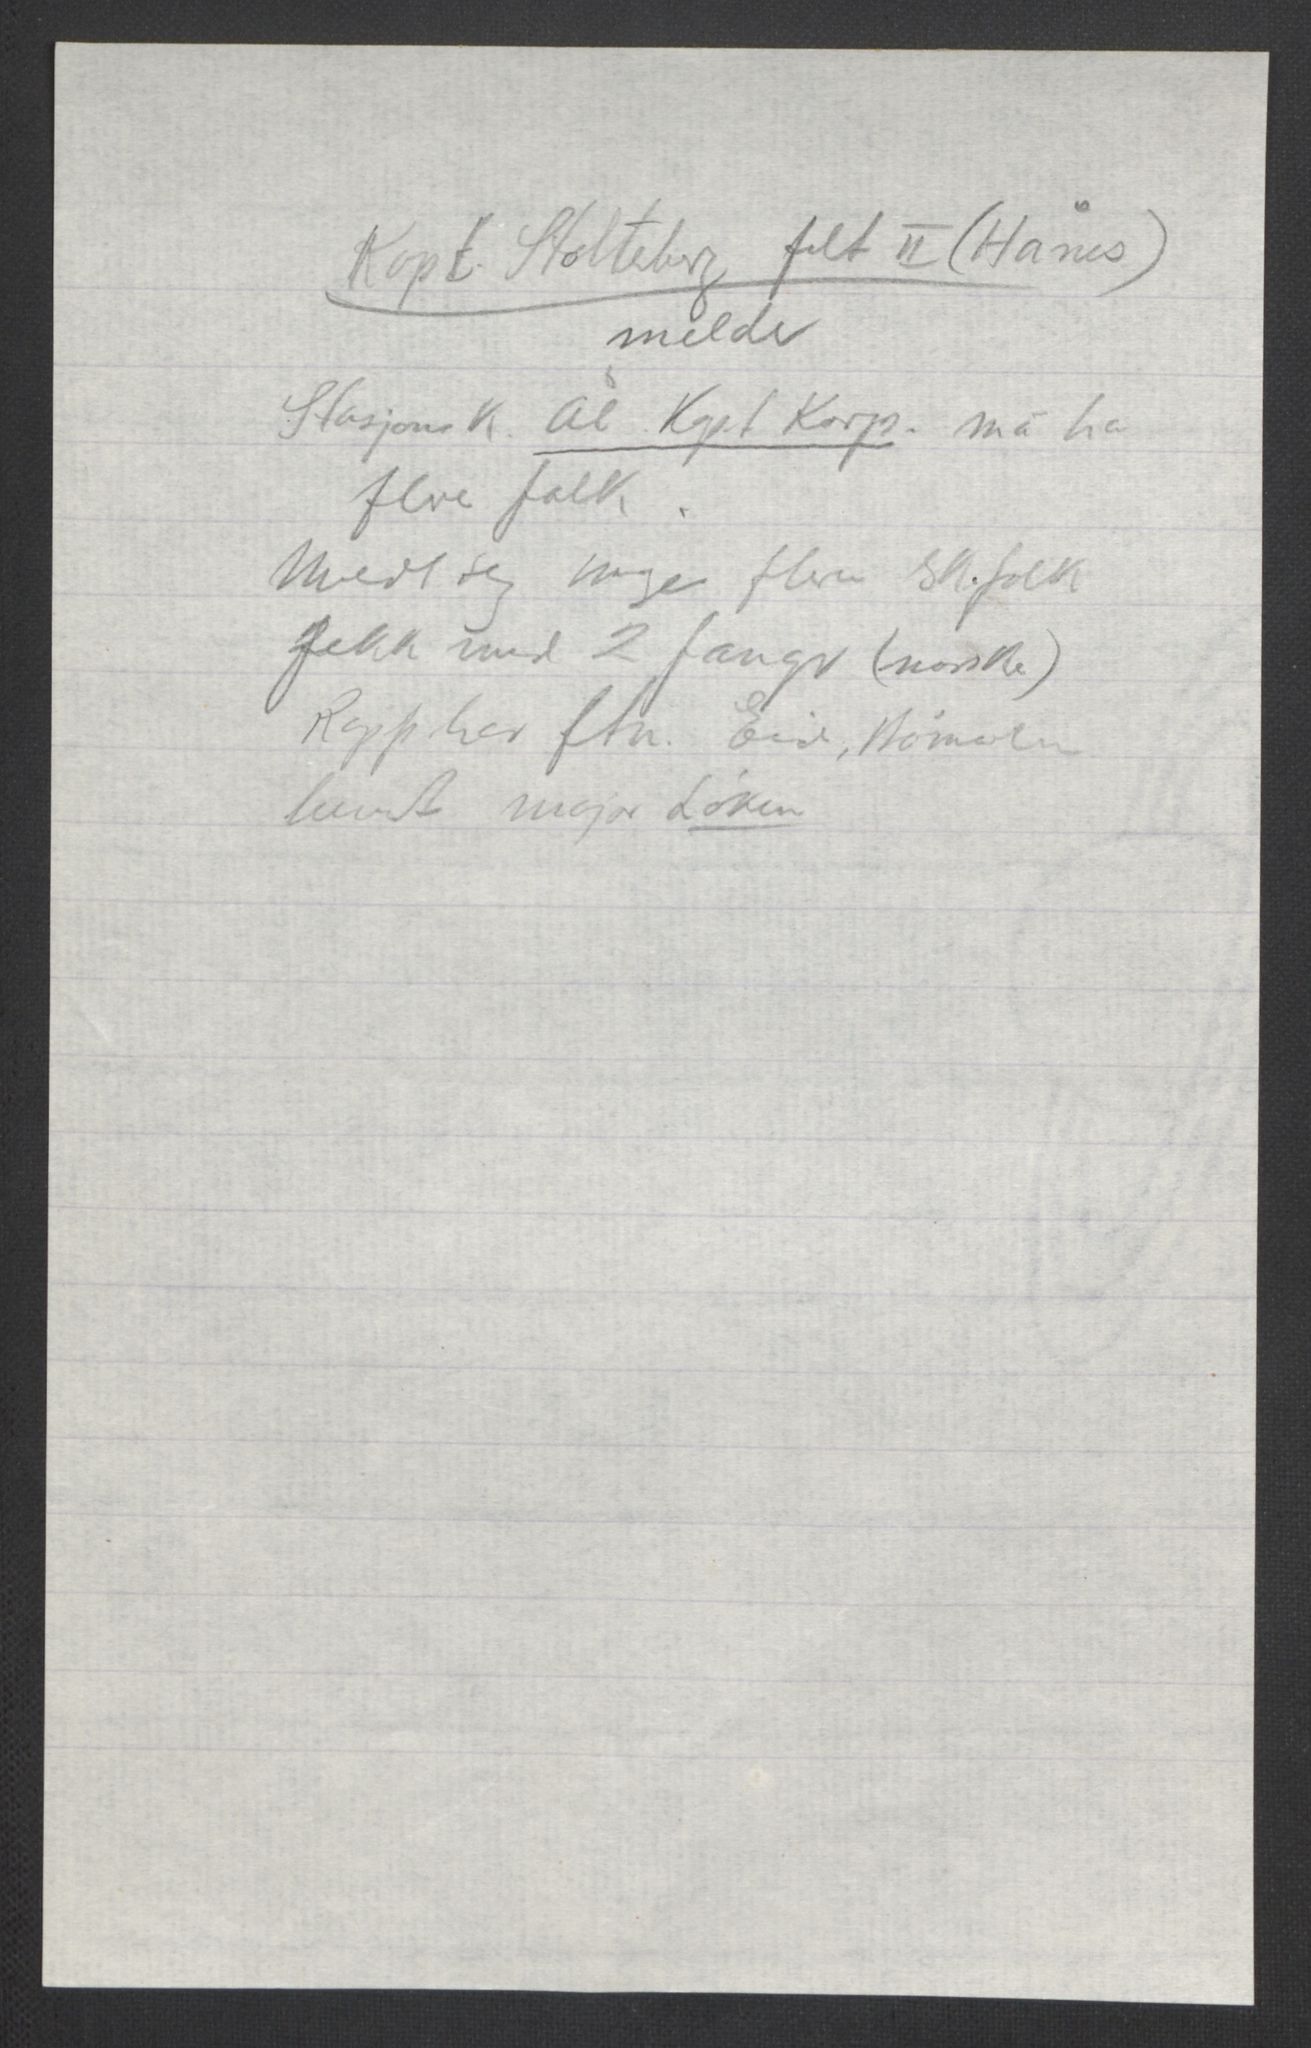 Kapt. Stoltenberg felt II (Hånes)
melder
Stasjonsk. Ål Kapt Korp. må ha
flere folk.
Meldt seg mge flere sk.folk
fekk med 2 fanger (norske)
Rapp her ftn. Eid,
major Löken